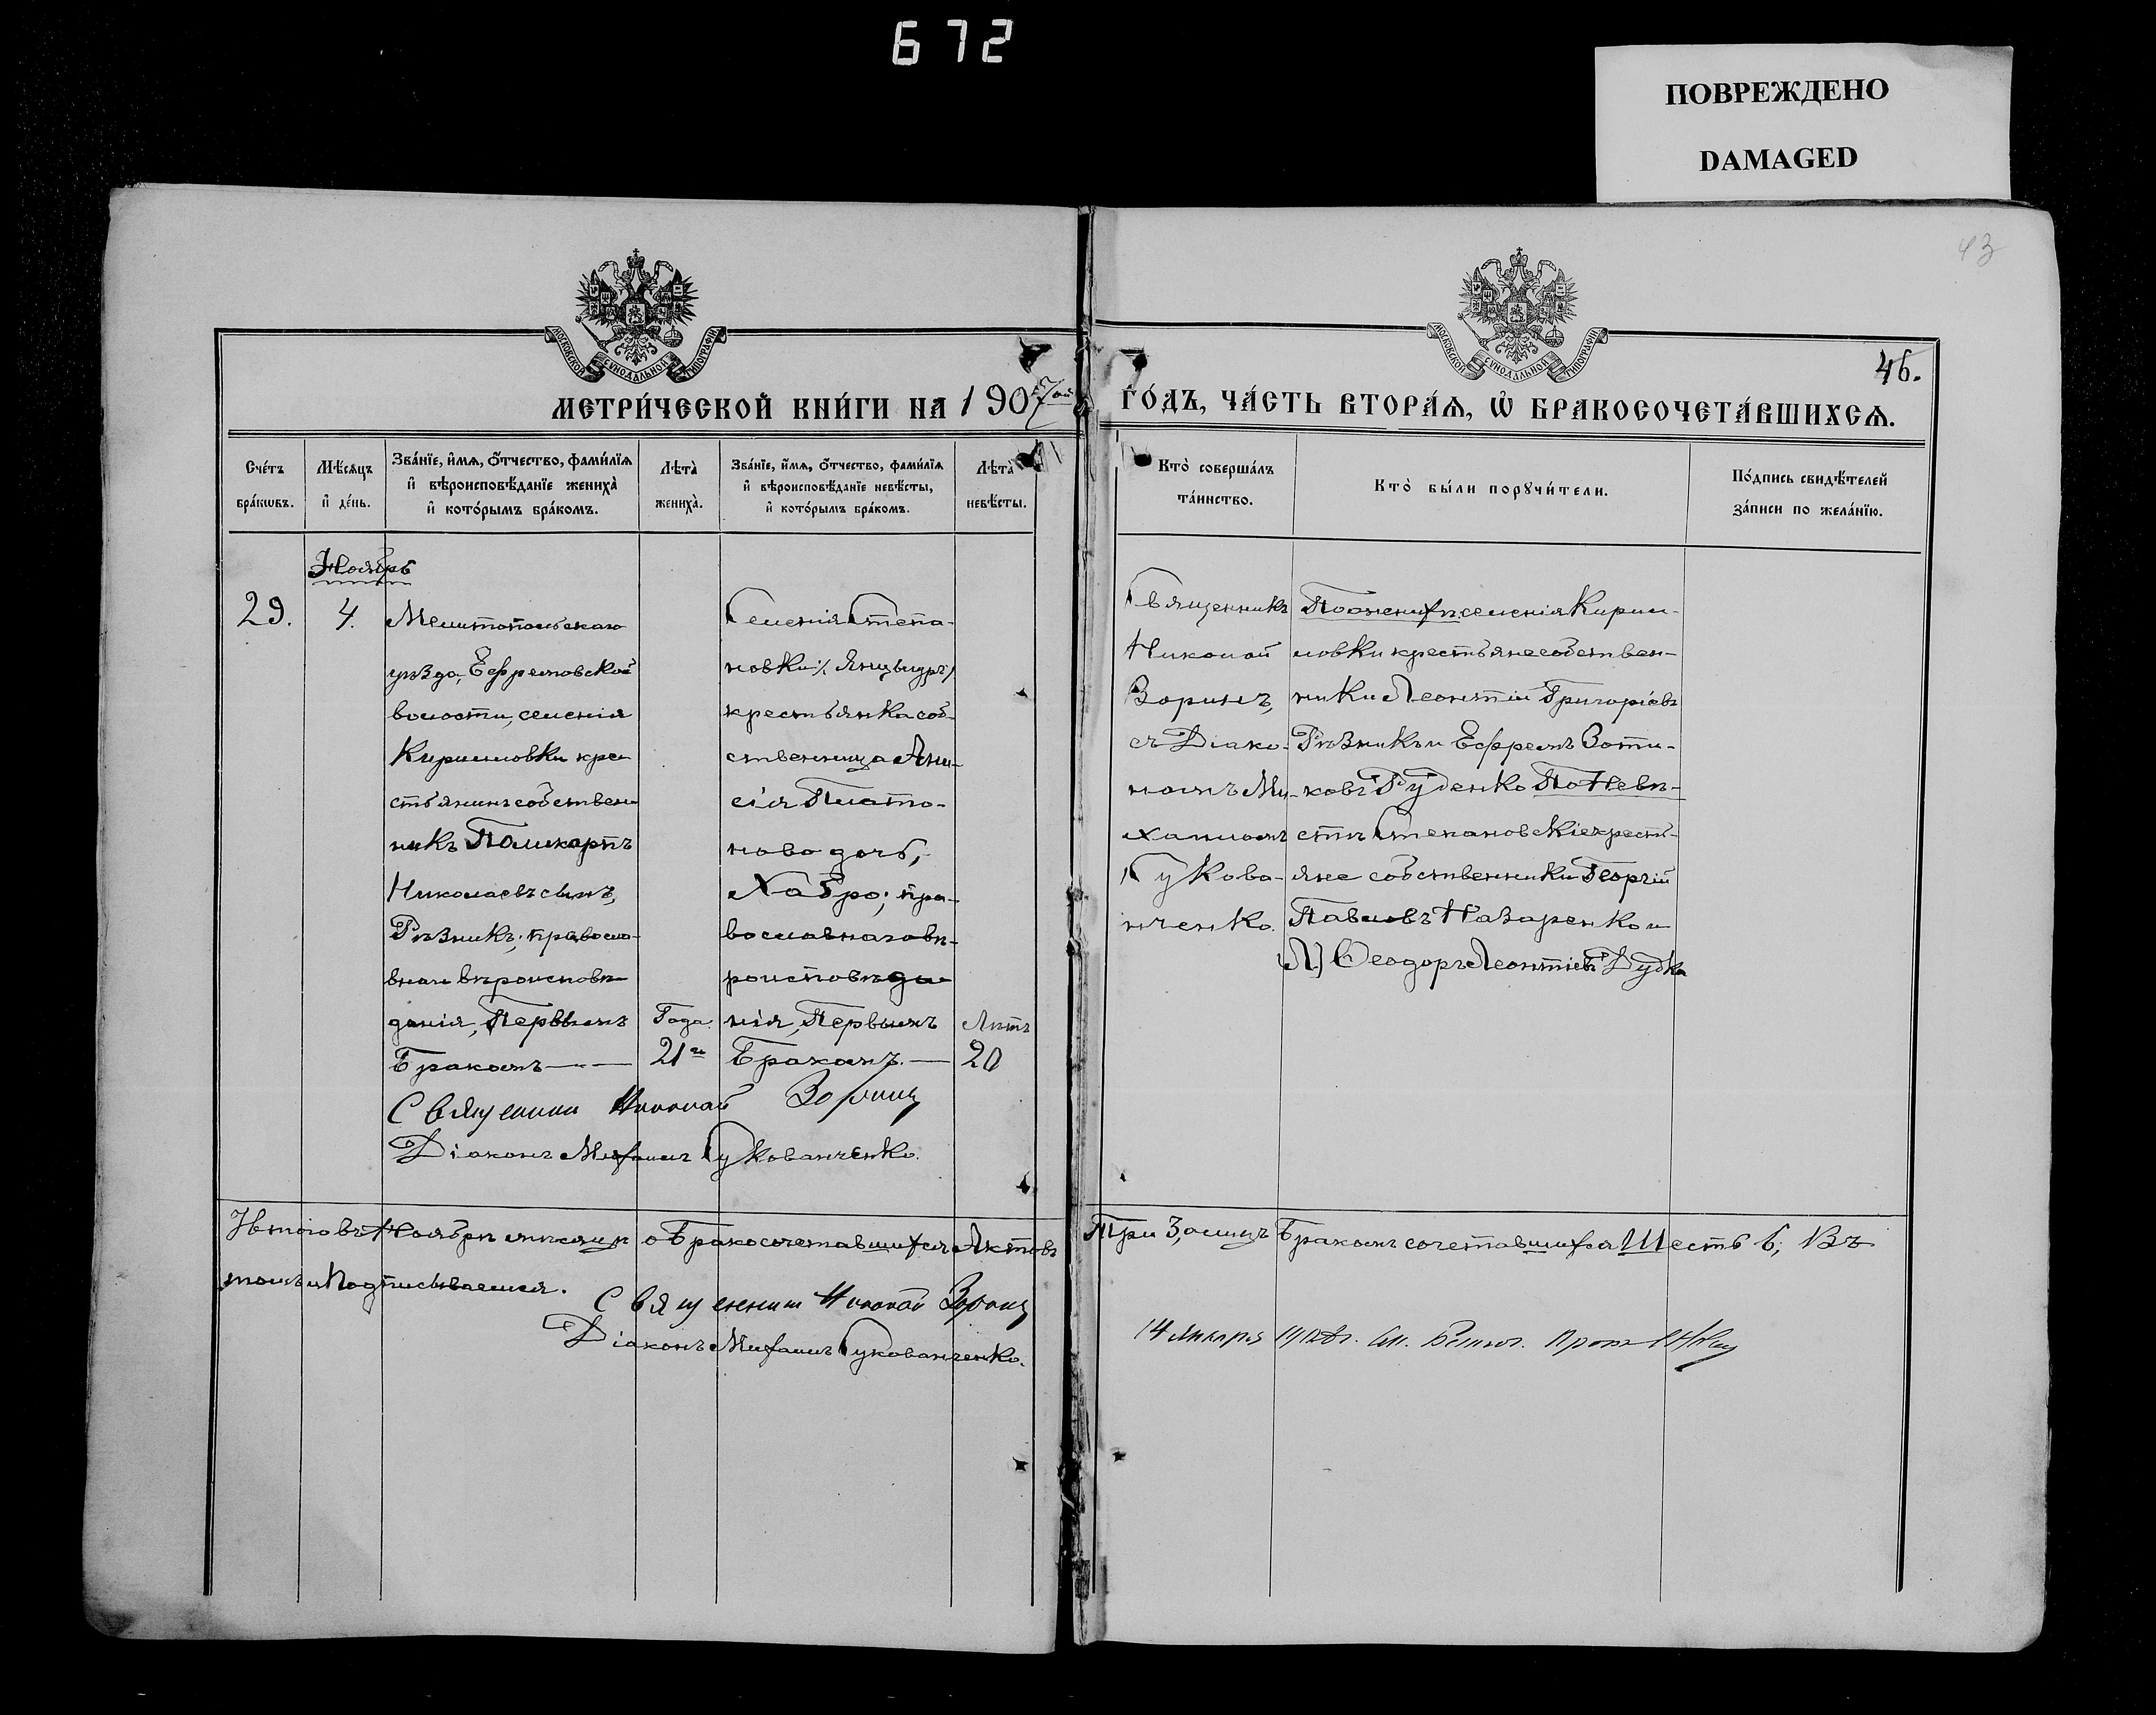 672
ПОВРЕЖДЕНО
DAMAGED
43
МОСКОВСКОЙ СѴНОДАЛЬНОЙ ТИПОГРАФІИ
МОСКОВСКОЙ СѴНОДАЛЬНОЙ ТИПОГРАФІИ
46.
МЕТРИ́ЧЕСКОЙ КНИ́ГИ НА 1907ой ГО́ДЪ, ЧА́СТЬ ВТОРА́Ѧ, Ѡ҆ БРАКОСОЧЕТА́ВШИХСѦ.
Сче́тъ бра́кѡвъ.
Мѣ́сѧцъ и҆ де́нь.
Зва́нїе, и҆́мѧ, ѻ҆́тчество, фами́лїѧ и҆ вѣроисповѣ́данїе жениха̀ и҆ кото́рымъ бра́комъ.
Лѣта̀ жениха̀.
Зва́нїе, и҆́мѧ, ѻ҆́тчество, фами́лїѧ и҆ вѣроисповѣ́данїе невѣ́сты, и҆ кото́рымъ бра́комъ.
Лѣта̀ невѣ́сты.
Кто̀ соверша́лъ та́инство.
Кто̀ бы́ли порꙋчи́тели.
По́дпись свидѣ́телей за́писи по жела́нїю.
Ноябрь
29.
4.
Мелитопольскаго
уѣзда, Ефремовской
волости, селенія
Кирилловки кре
стьянинъ собствен
никъ Поликарпъ
Николаевъ сынъ,
Рѣзникъ; правосла-
внаго вѣроисповѣ
данія, Первымъ
Бракомъ
Года.
21го
Селенія Степа-
новки
крестьянка соб-
ственница Ани-
сія Плато-
нова дочь,
Хабро; пра-
вославнаго вѣ-
роисповѣда-
нія, Первымъ
Бракомъ.
Лѣтъ
20
Священникъ
Николай
Зоринъ,
съ Діако-
номъ Ми-
хаиломъ
Сукова-
нченко.
По женихѣ селенія Кирил-
ловки крестьяне собствен-
ники Леонтій Григоріевъ
Рѣзникъ и Ефремъ Зоти-
ковъ Руденко По Невѣ-
стѣ Степановскіе кресть-
яне собственники Георгій
Павловъ Назаренко и
Ѳеодоръ Леонтіевъ Дудка
Священникъ Николай Зоринъ
Діаконъ Михаилъ Сукованченко.
Итого въ Ноябрѣ мѣсяцѣ о Бракосочетавшихся Актовъ Три 3, а лицъ Бракомъ сочетавшихся Шесть 6; Въ
томъ и Подписываемся.
Священникъ Николай Зоринъ
Діаконъ Михаилъ Сукованченко.
14 Января 1908г.